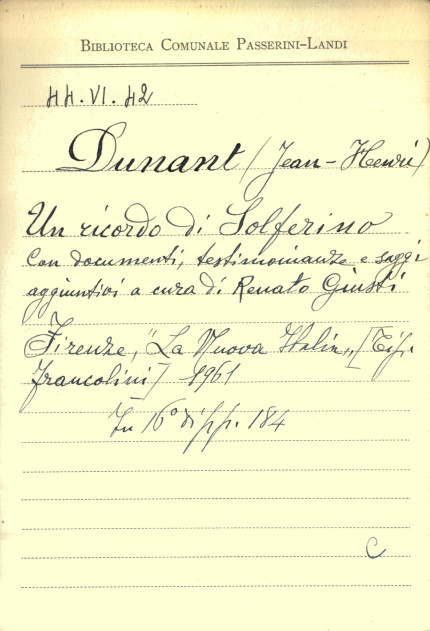 BIBLIOTECA COMUNALE PASSERINI-LANDI
44.VI.42
Dunant (Jean-Henri)
Un ricordo di Solferino
Con documenti, testimonianze e saggi
aggiuntivi a cura di Renato Giusti
Firenze, "La Nuova Italia" [Tip.
Francolini] 1961
In 16° di pp. 184
C